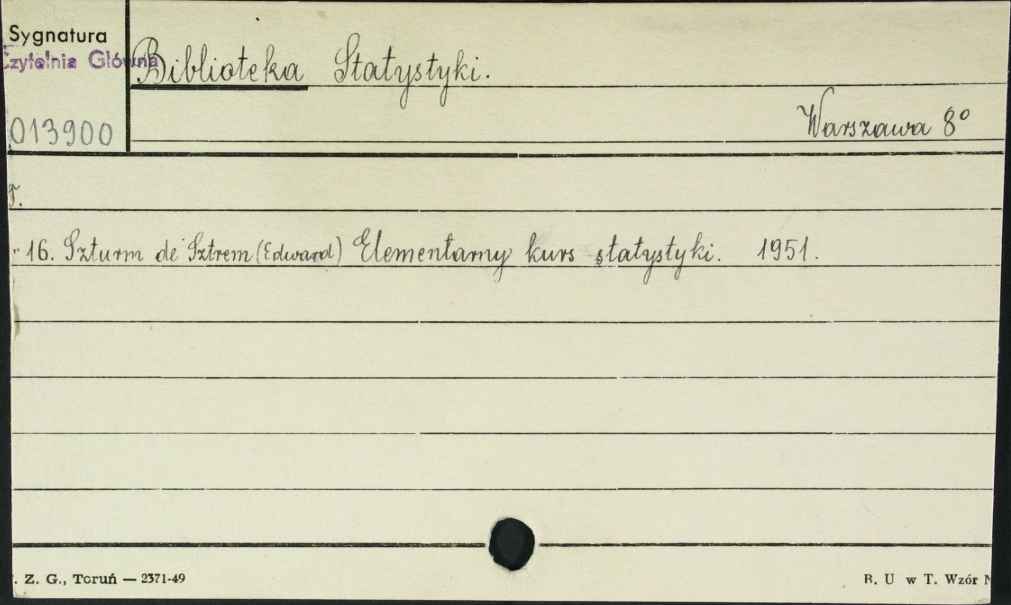 Sygnatura
Czytelnia Główna
Biblioteka Statystyki.
013900
Warszawa 8°
T.
" 16. Szturm de Sztrem (Edward) Elementarny kurs statystyki. 1951.
. Z. G., Toruń — 2371-49
B. U w T. Wzór N